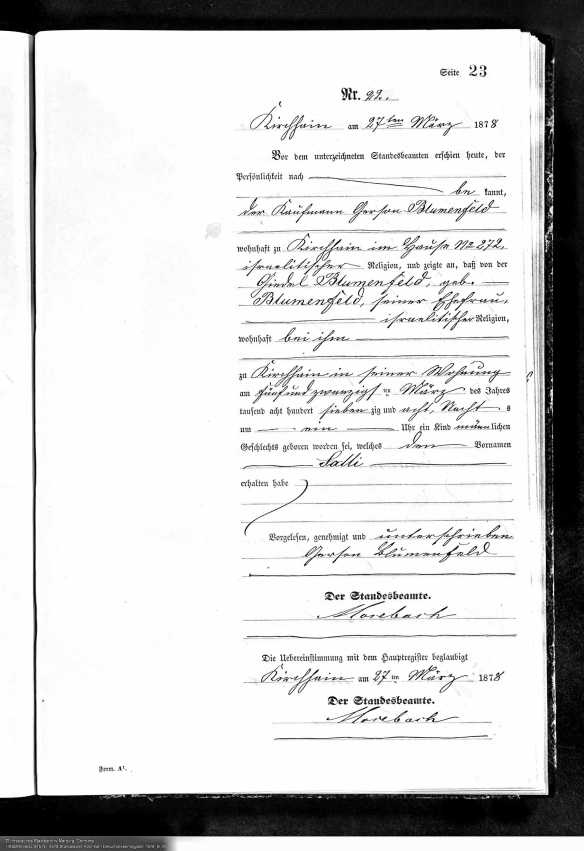 Seite 23
Nr. 22.
Kirchhain am 27ten März 1878
Vor dem unterzeichneten Standesbeamten erschien heute, der
Persönlichkeit nach
be kannt,
der Kaufmann Gerson Blumenfeld
wohnhaft zu Kirchhain im Hause No 272,
israelitischer Religion, und zeigte an, daß von der
Giedel Blumenfeld, geb.
Blumenfeld, seiner Ehefrau,
israelitischer Religion,
wohnhaft bei ihm
zu Kirchhain in seiner Wohnung
am fünf und zwanzigsten März des Jahres
tausend acht hundert sieben zig und acht, Nacht s
um ein Uhr ein Kind männlichen
Geschlechts geboren worden sei, welches den Vornamen
Salli
erhalten habe
Vorgelesen, genehmigt und unterschrieben
Gerson Blumenfeld
Der Standesbeamte.
Die Uebereinstimmung mit dem Hauptregister beglaubigt
Kirchhain am 27ten März 1878
Der Standesbeamte.
Form. A¹.